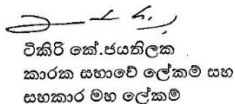 ටිකිරි කේ.ජයතිලක
කාරක සභාවේ ලේකම් සහ
සහකාර මහ ලේකම්